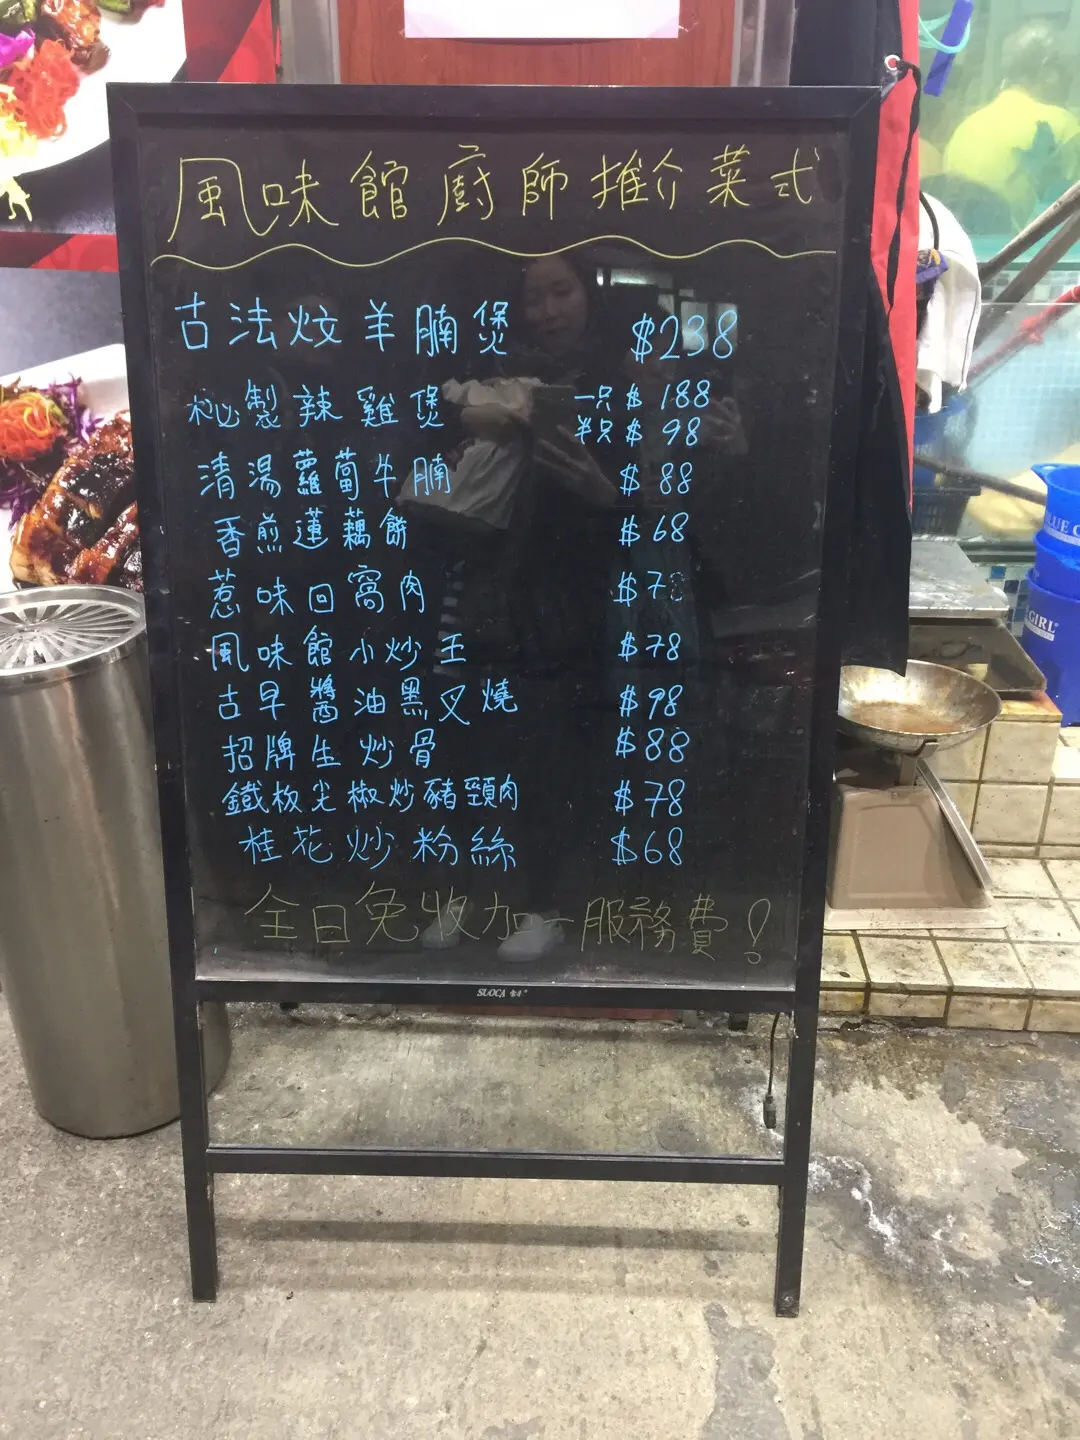 風味館廚師推介菜式
古法炆羊腩煲 $238
秘製辣雞煲 一只 $ 188
半只 $ 98
清湯蘿蔔牛腩 $ 88
香煎蓮藕餅 $ 68
惹味回窩肉
風味館小炒王 $78
古早醬油黑叉燒 $98
招牌生炒骨 $88
鐵板尖椒炒豬頸肉 $78
桂花炒粉絲 $68
全日免收加一服務費！
SUOCA
GIRL